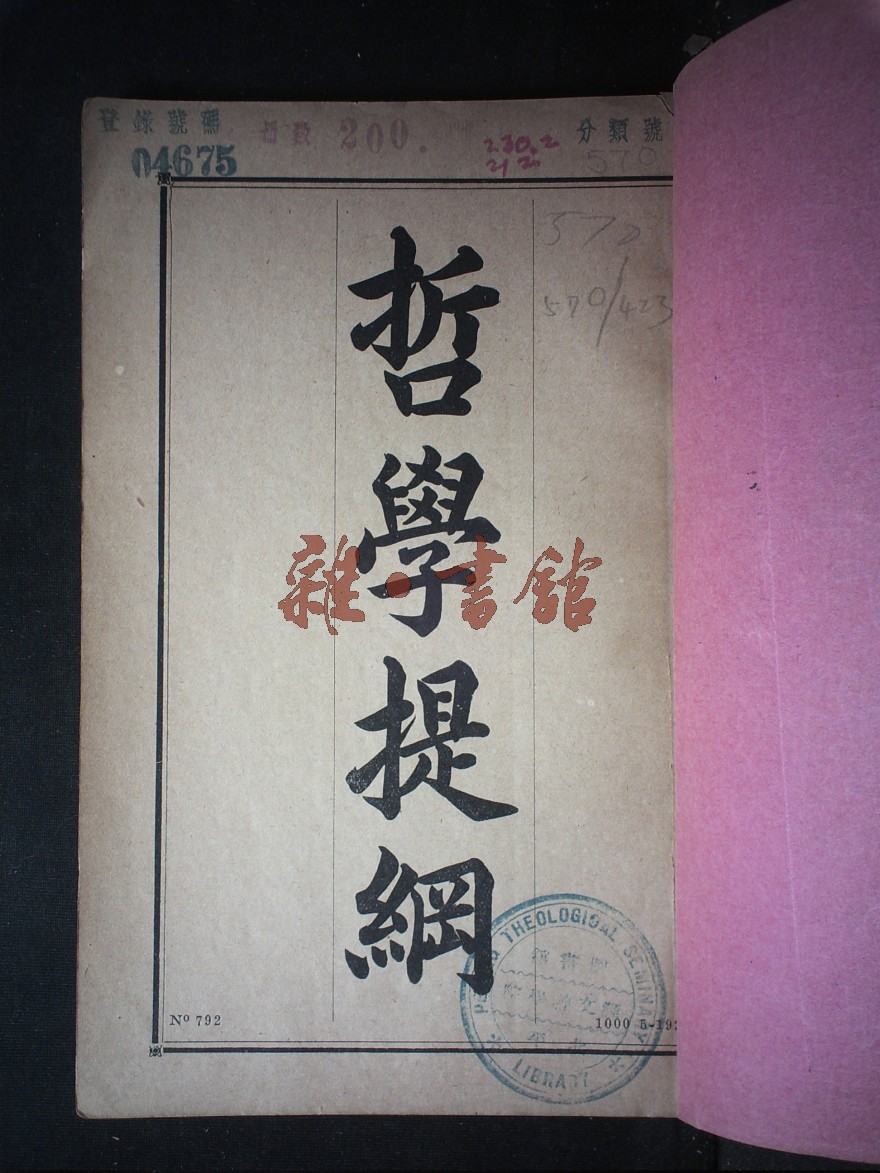 登錄號碼
04675
200.
230.2
212
分類號
570
570
570/423
哲學提綱
雜·書館
THEOLOGICAL SEMINARY
LIBRARY
Nº 792
1000 5-192